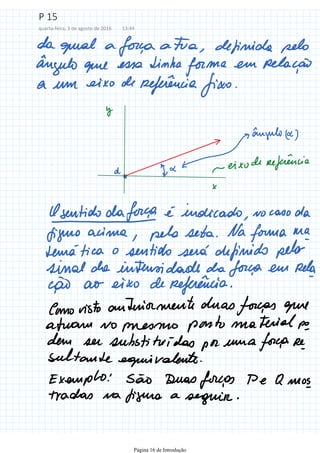 P 15
quarta-feira, 3 de agosto de 2016 13:44
da qual a força atua, definida pelo
ângulo que essa linha forma em relação
a um eixo de referência fixo.
y
ângulo (α)
α
eixo de referência
d
x
O sentido da força é indicado, no caso da
figura acima, pela seta. Na forma ma
temática o sentido será definido pelo
sinal da intensidade da força em rela
ção ao eixo de referência.
Como visto anteriormente duas forças que
atuam no mesmo ponto material po
dem ser substituídas por uma força re
sultante equivalente.
Exemplo: São Duas forças P e Q mos
tradas na figura a seguir.
Página 16 de Introdução